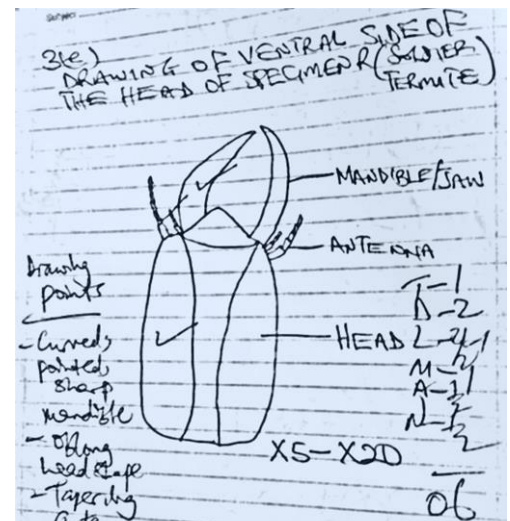 3(e)
DRAWING OF VENTRAL SIDE OF
THE HEAD OF SPECIMEN R (SOLDIER
TERMITE)
MANDIBLE/JAW
ANTENNA
HEAD
X5-X20
Drawing
points
- Curved,
pointed
sharp
mandible
- Oblong
head shape
- Tapering
T-1
D-2
06